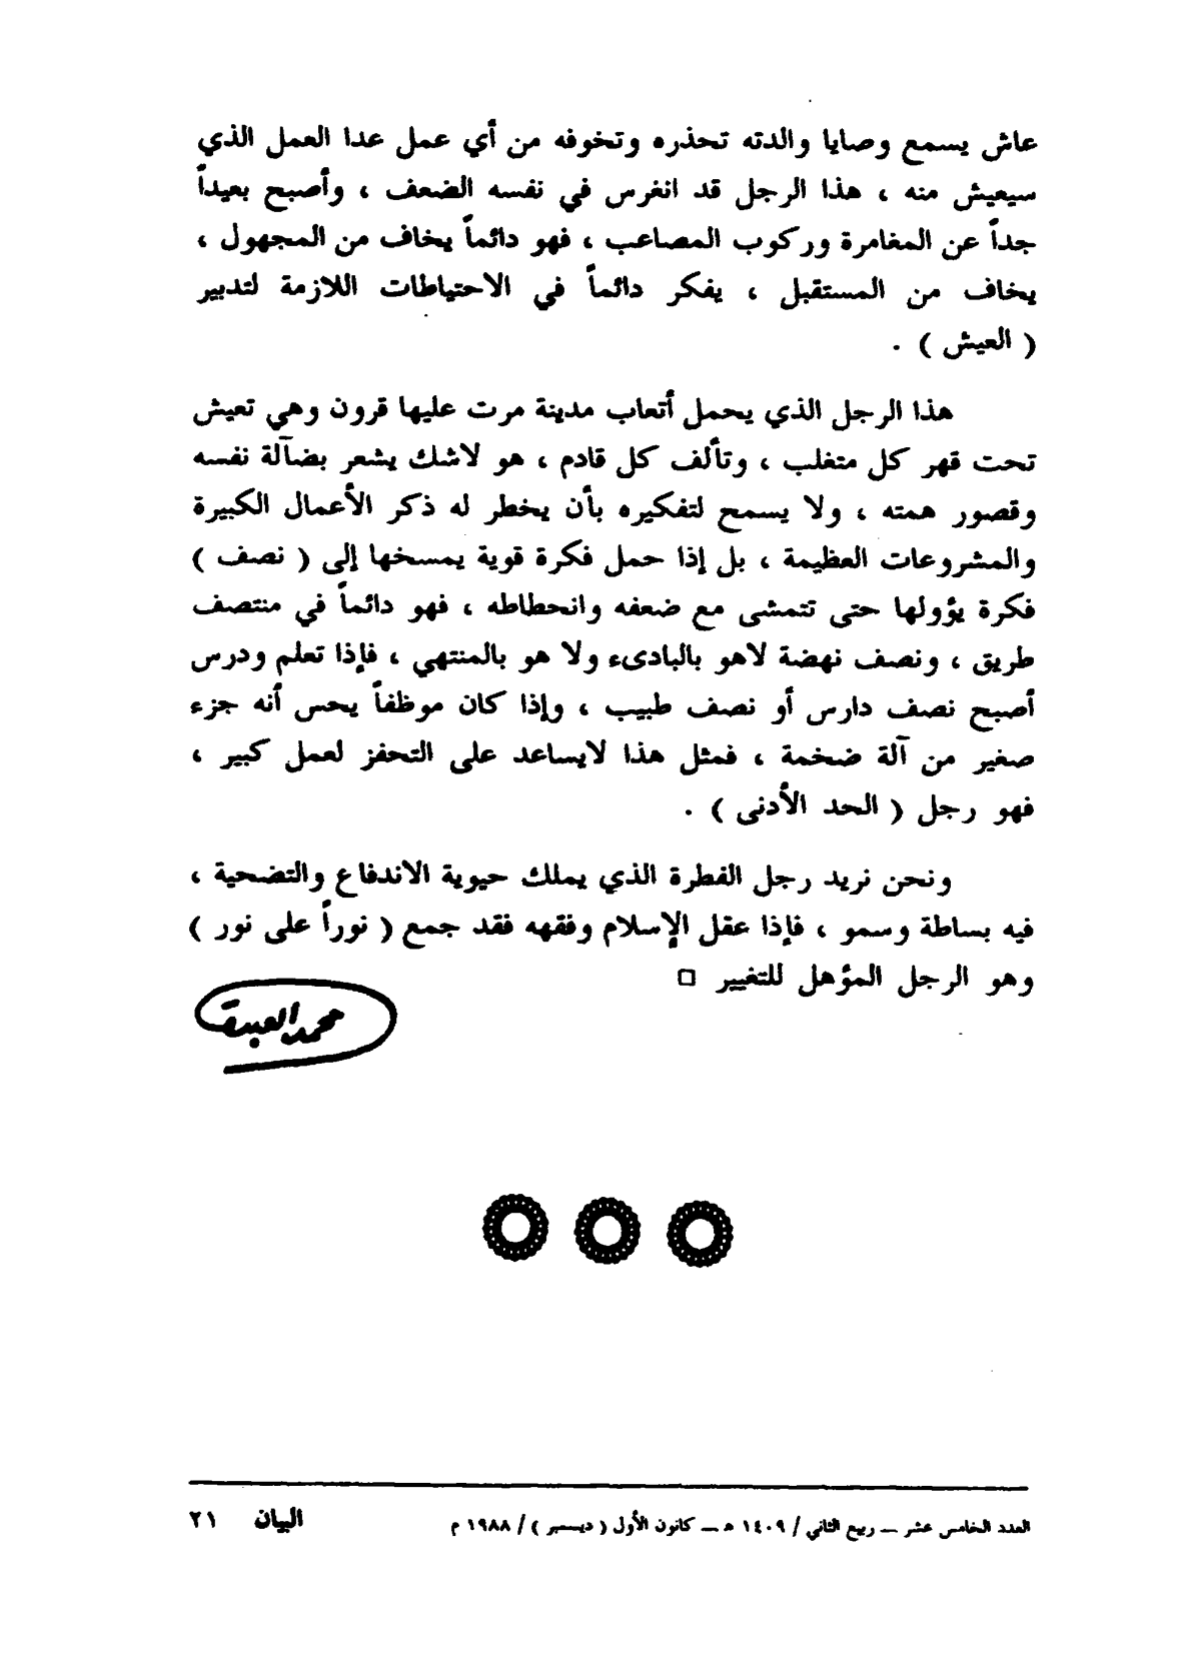 عاش يسمع وصايا والدته تحذره وتخوفه من أي عمل عدا العمل الذي
سيعيش منه ، هذا الرجل قد انغرس في نفسه الضعف ، وأصبح بعيداً
جداً عن المغامرة وركوب المصاعب ، فهو دائماً يخاف من المجهول ،
يخاف من المستقبل ، يفكر دائماً في الاحتياطات اللازمة لتدبير
( العيش ) .
هذا الرجل الذي يحمل أتعاب مدينة مرت عليها قرون وهي تعيش
تحت قهر كل متغلب ، وتألف كل قادم ، هو لاشك يشعر بضآلة نفسه
وقصور همته ، ولا يسمح لتفكيره بأن يخطر له ذكر الأعمال الكبيرة
والمشروعات العظيمة ، بل إذا حمل فكرة قوية يمسخها إلى ( نصف )
فكرة يؤولها حتى تتمشى مع ضعفه وانحطاطه ، فهو دائماً في منتصف
طريق ، ونصف نهضة لاهو بالبادىء ولا هو بالمنتهي ، فإذا تعلم ودرس
أصبح نصف دارس أو نصف طبيب ، وإذا كان موظفاً يحس أنه جزء
صغير من آلة ضخمة ، فمثل هذا لايساعد على التحفز لعمل كبير ،
فهو رجل ( الحد الأدنى ) .
ونحن نريد رجل الفطرة الذي يملك حيوية الاندفاع والتضحية ،
فيه بساطة وسمو ، فإذا عقل الإسلام وفقهه فقد جمع ( نوراً على نور )
وهو الرجل المؤهل للتغيير □
محمد العبدة
العدد الخامس عشر ــ ربيع الثاني / ١٤٠٩ هـ ــ كانون الأول ( ديسمبر ) / ١٩٨٨ م
البيان ٢١